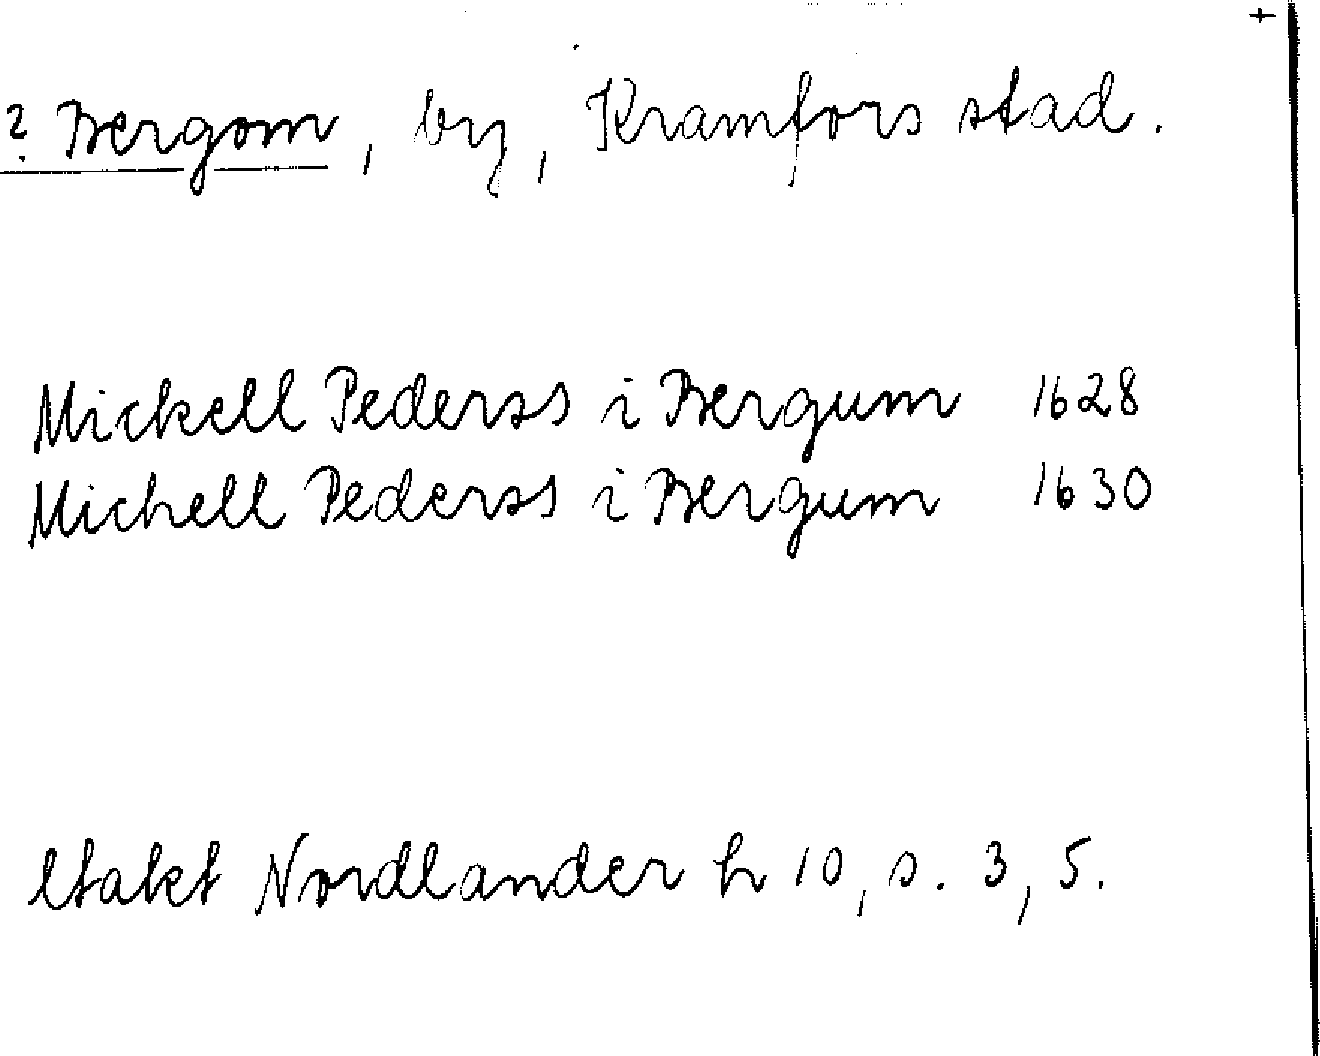 ? Bergom, by, Kramfors stad.
Mickell Pederss i Bergum 1628
Michell Pederss i Bergum 1630
Utakt Nordlander h 10, s. 3, 5.